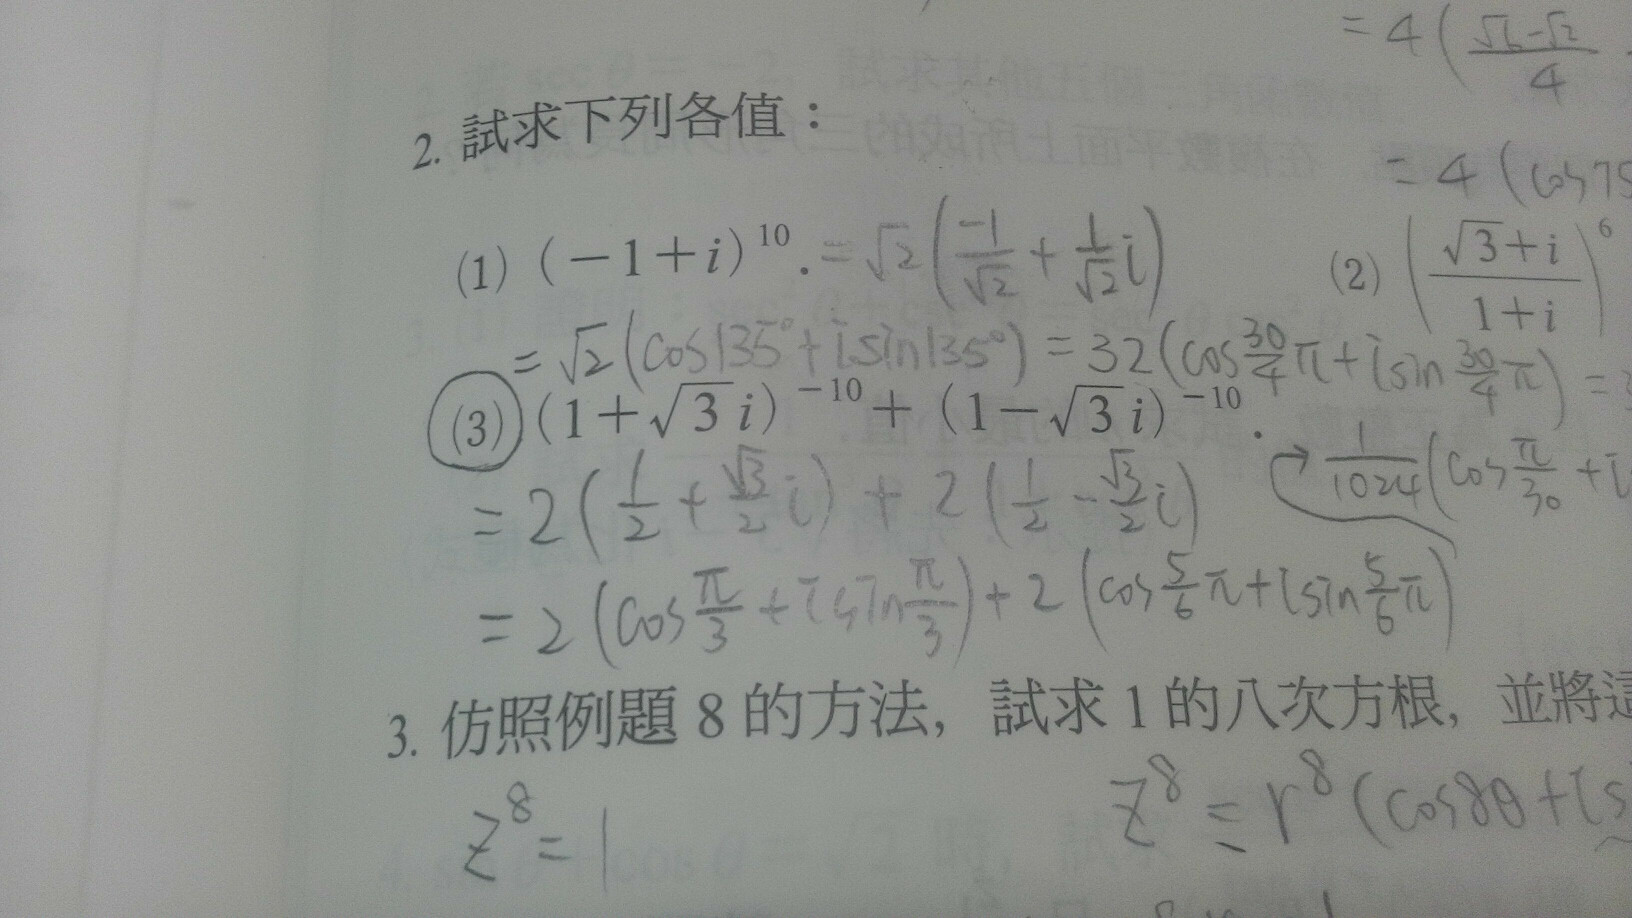 = 4 ( (√6-√2)/4
2. 試求下列各值：
= 4 (cos75
(1) (-1+i)^10. = √2 ( -1/√2 + 1/√2 i )
(2) ( (√3+i)/(1+i) )^6
= √2 (cos135°+isin135°) = 32 (cos 30/4 π + isin 30/4 π) =
(3) (1+√3 i)^-10 + (1-√3 i)^-10.
= 2 ( 1/2 + √3/2 i ) + 2 ( 1/2 - √3/2 i )
→ 1/1024 (cos π/30 + i
= 2 (cos π/3 + isin π/3) + 2 (cos 5/6 π + isin 5/6 π)
3. 仿照例題 8 的方法, 試求 1 的八次方根, 並將這
z^8 = 1
z^8 = r^8 (cos8θ + is